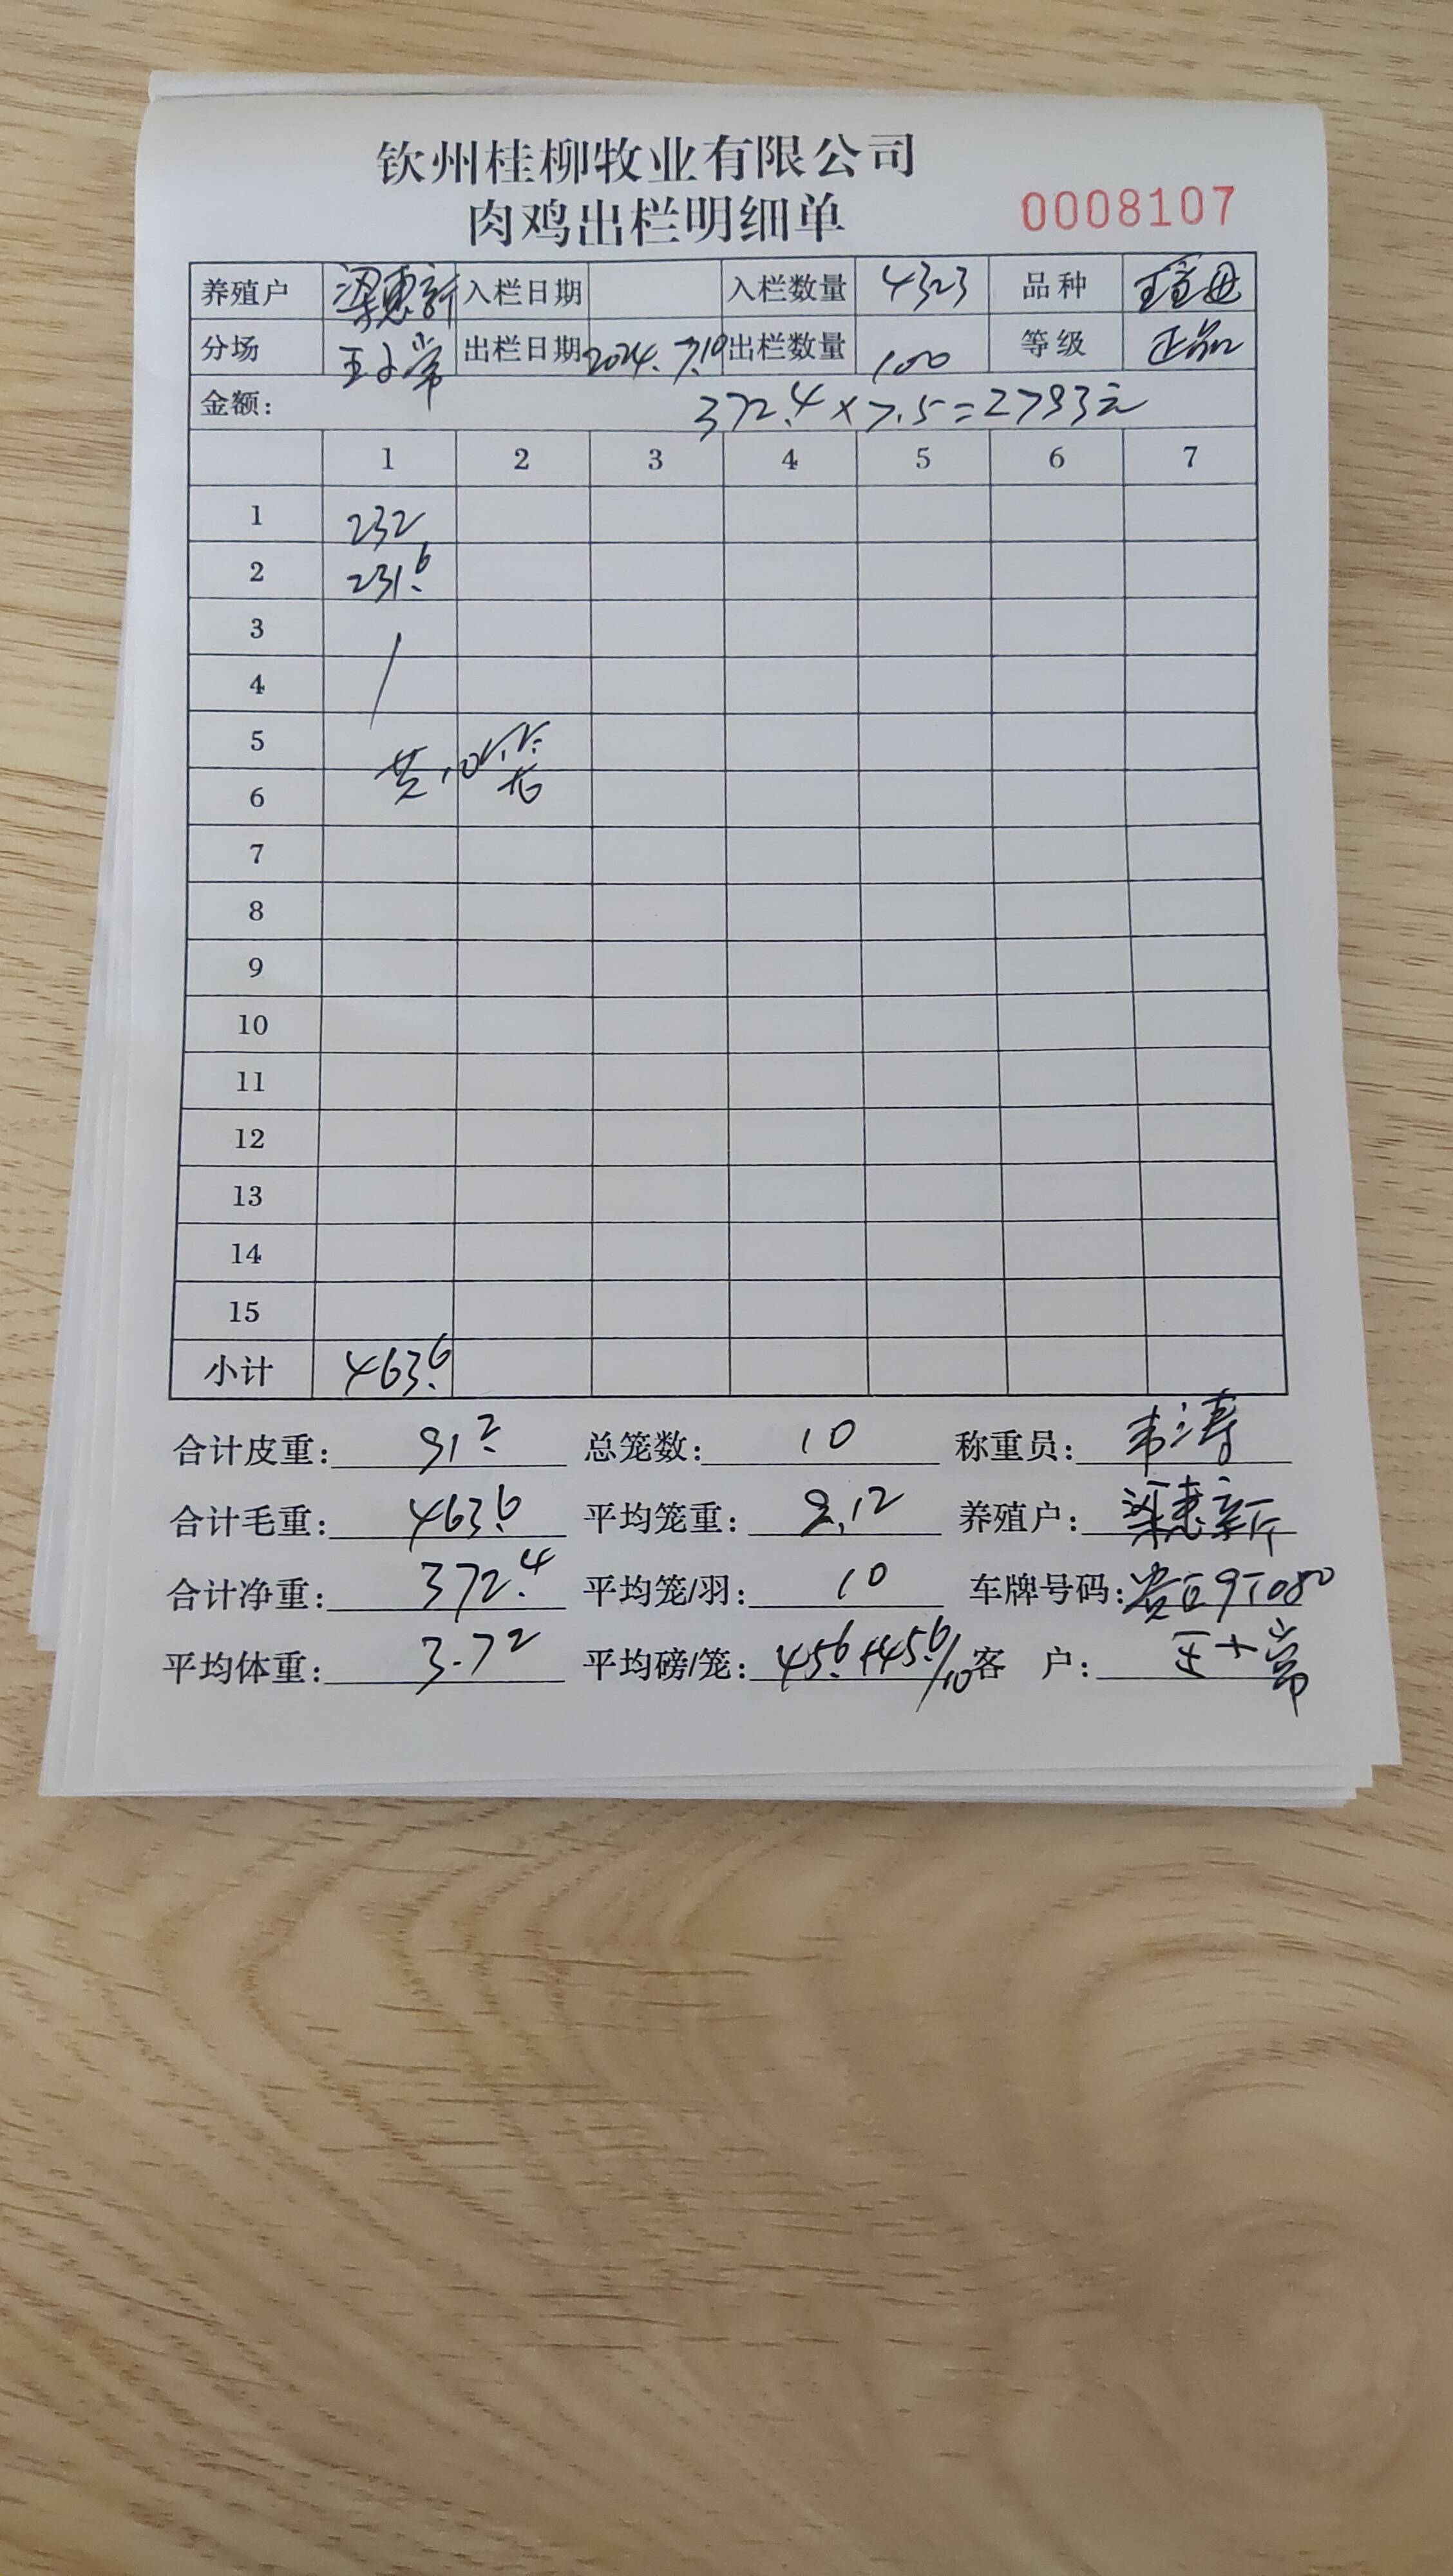 钦州桂柳牧业有限公司
肉鸡出栏明细单 0008107
养殖户 梁惠新 入栏日期 入栏数量 4323 品种
分场 出栏日期 2024.7.10 出栏数量 100 等级 正品
金额: 372.4×7.5=2793元
1 2 3 4 5 6 7
1 232
2 231.6
3
4
5
6 共10
7
8
9
10
11
12
13
14
15
小计 463.6
合计皮重: 91.2 总笼数: 10 称重员: 韦涛
合计毛重: 463.6 平均笼重: 9.12 养殖户: 梁惠新
合计净重: 372.4 平均笼/羽: 10 车牌号码:
平均体重: 3.72 平均磅/笼: 45.6+45.6/10 客 户: